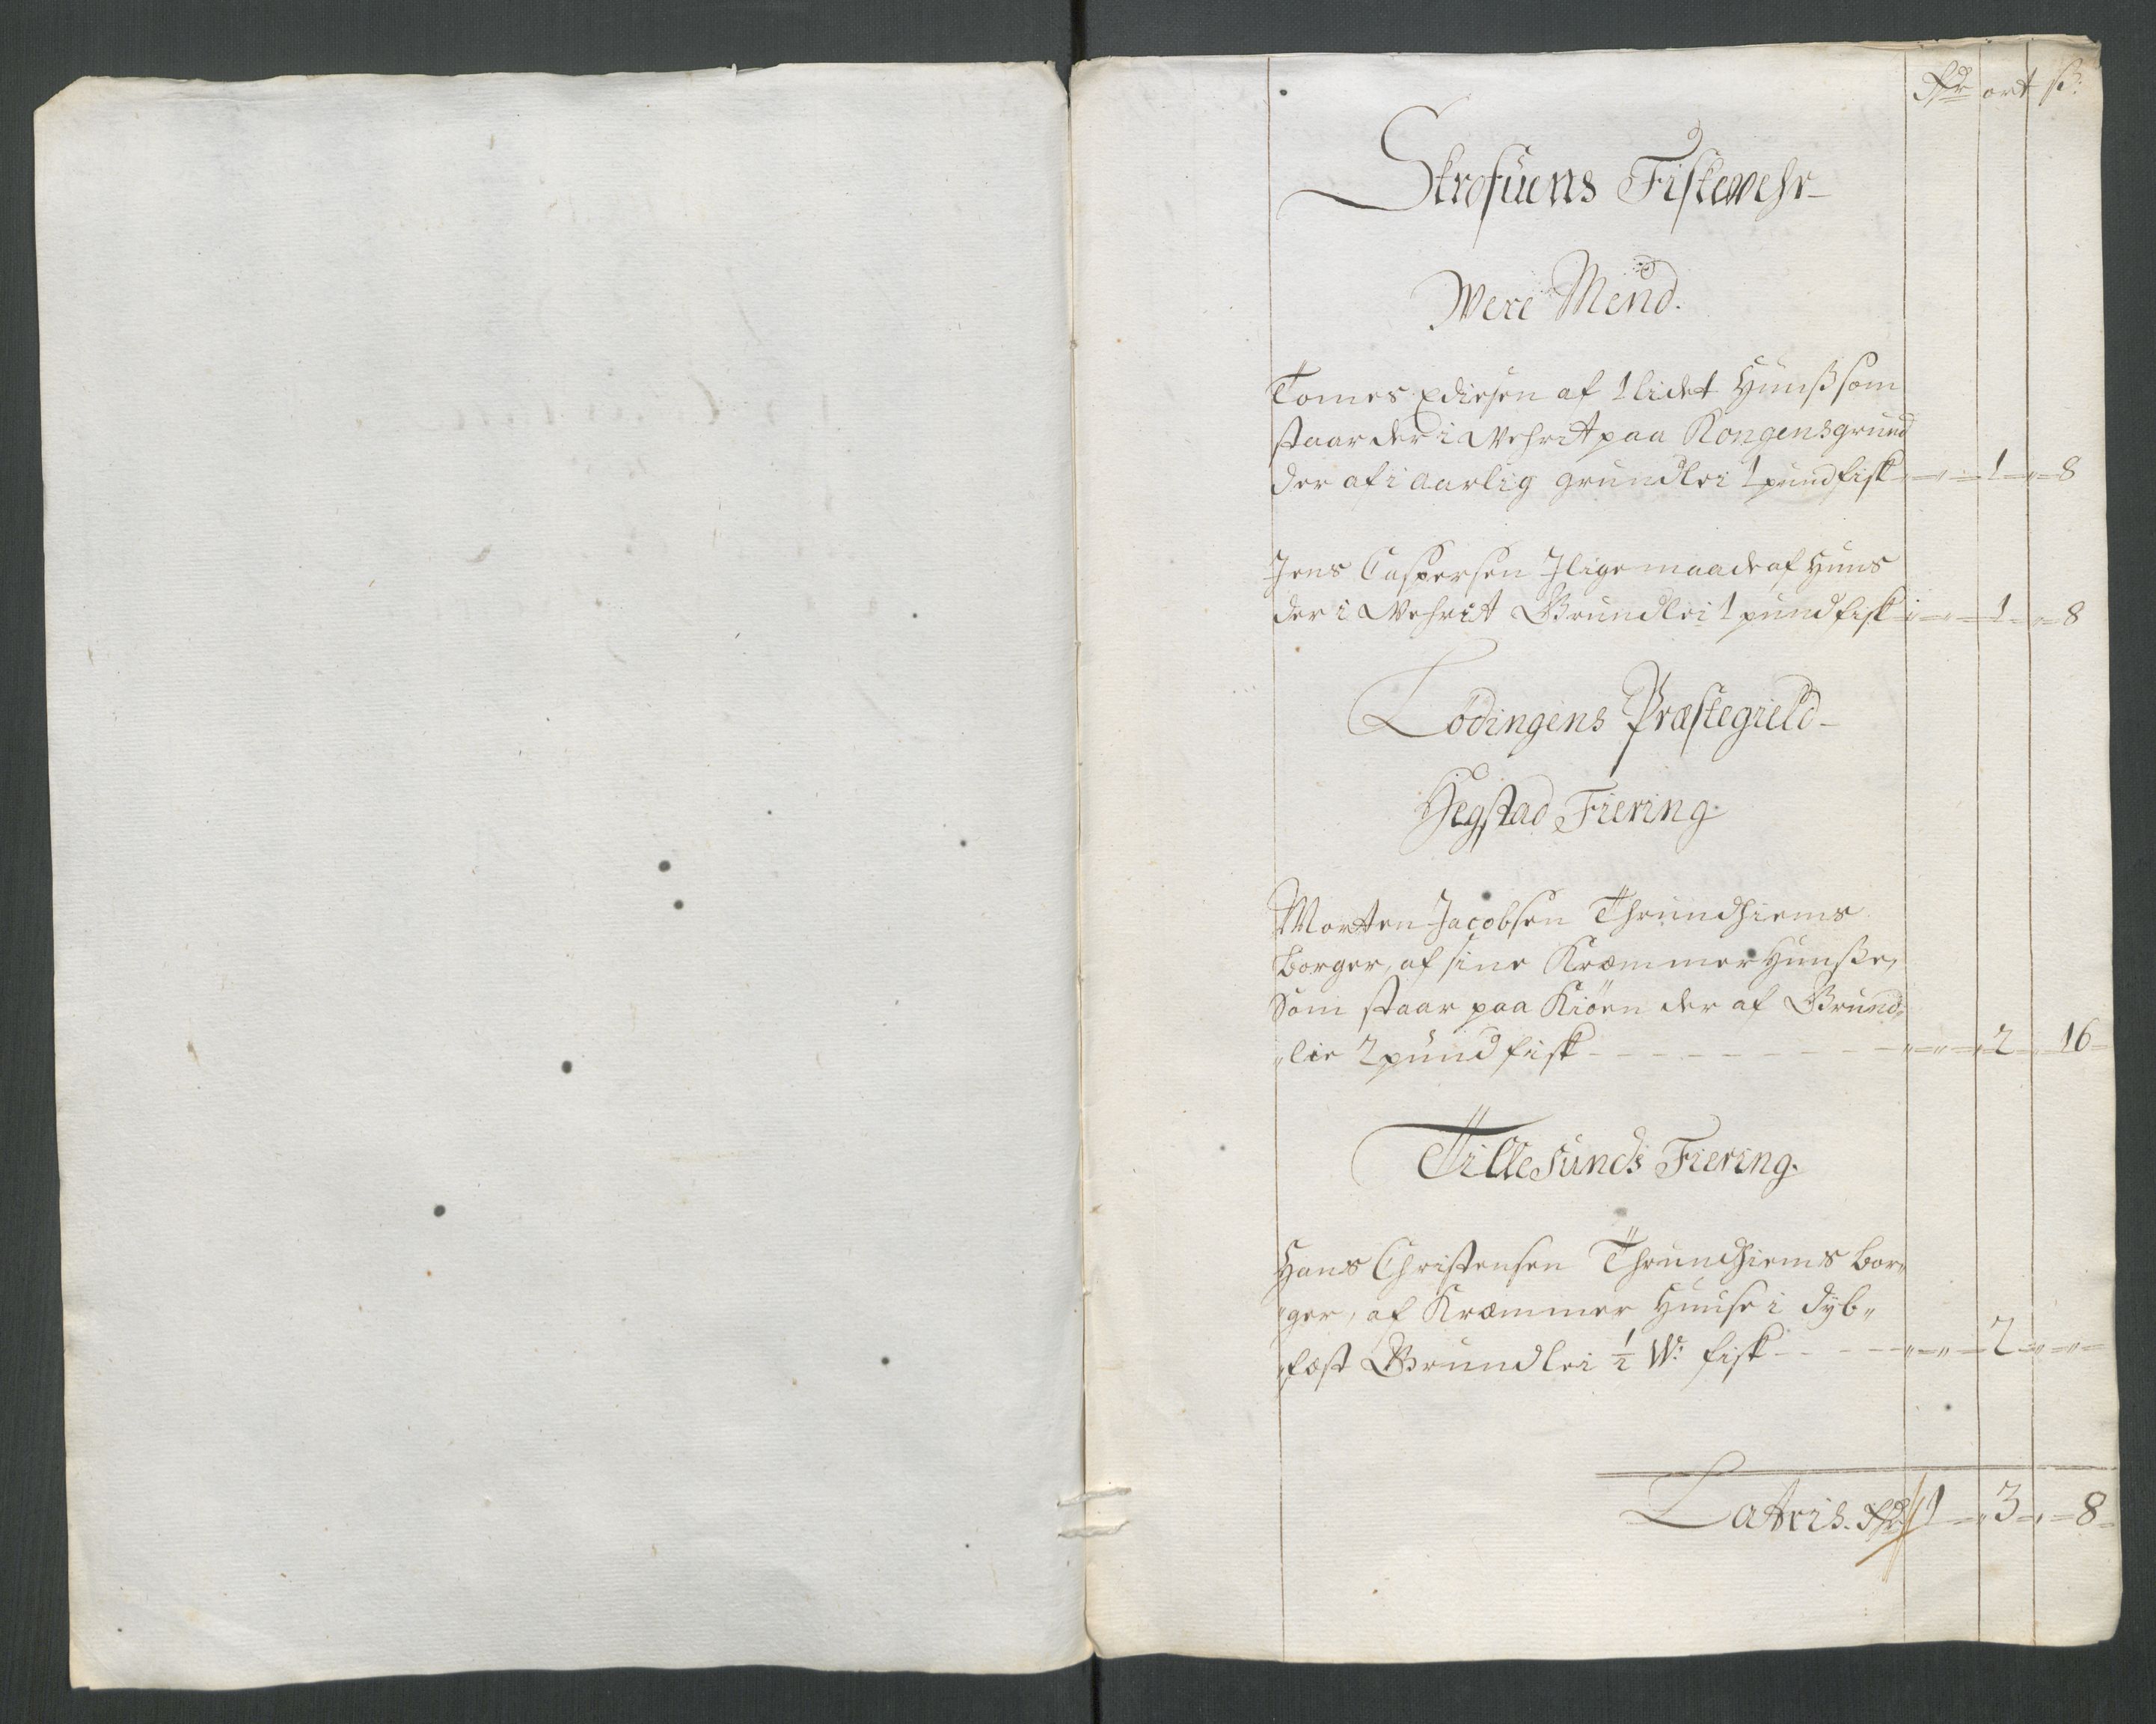 Rdr ort ß:
Skrofuens Fiskewehr
Were Mend.
Tomes Ediesen af 1 lidet Huuß som
staar der i Wehret paa Kongens grund
der af i aarlig grundlei 1 pund fisk - 1 - 8
Jens Caspersen Jlige maade af Huus
der i Wehret Grundlei 1 pund fisk - 1 - 8
Lødingens Præstegield
Hegstad Fiering
Morten Jacobsen Thrundhiems
borger, af sine Kræmmer Huuße,
som staar paa Kiøen der af Grund-
leie 2 pund fisk - 2 - 16
Tillesunds Fiering.
Hans Christensen Thrundhiems bor-
ger, af Kræmmer Huuse i Dyb-
fæst Grundlei 1/2 W: fisk - 2 -
Lateris. Rdr 1 - 3 - 8